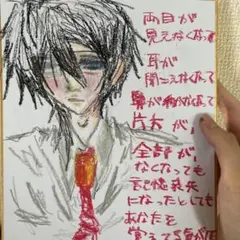 両目が
見えなくなって
耳が
聞こえなくなって
鼻が
片方が、
全部が、
なくなっても
記憶喪失
になったとしても
あなたを
覚えて